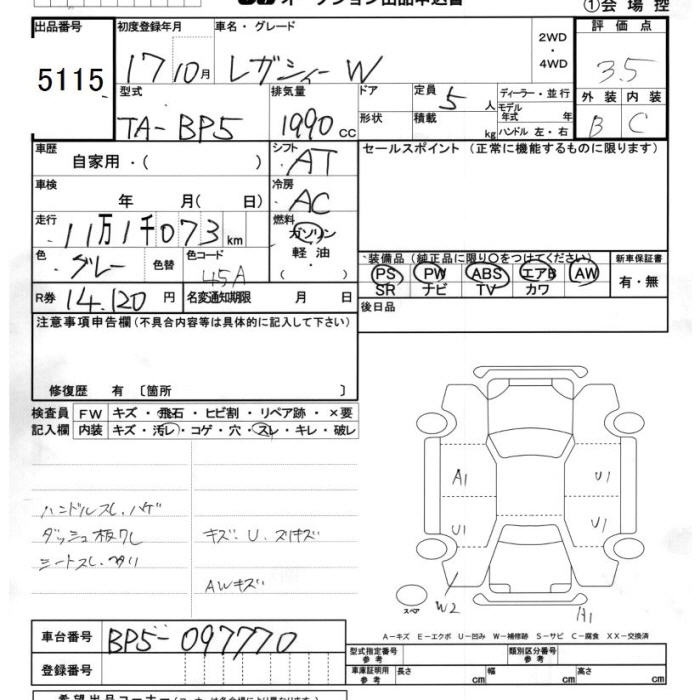 オークション出品申込書 ①会場控
出品番号 初度登録年月 車名・グレード 2WD・4WD 評価点
5115 17 10月 レガシィーW 3.5
型式 排気量 ドア 定員 5 人 ディーラー・並行 外装 内装
TA-BP5 1990 CC 形状 積載 kg モデル年式 年 ハンドル 左・右 B C
車歴 自家用・( ) シフト AT セールスポイント (正常に機能するものに限ります)
車検 年 月(日) 冷房 AC
走行 11万1千073 km 燃料 ガソリン 軽油 ・( )
色 グレー 色替 色コード 45A
装備品 (純正品に限り○をつけてください) 新車保証書
PS PW ABS エアB AW 有・無
SR ナビ TV カワ
R券 14,120 円 名変通知期限 月 日 後日品
注意事項申告欄(不具合内容等は具体的に記入して下さい)
修復歴 有 〔箇所 〕
検査員 FW キズ・飛石・ヒビ割・リペア跡・×要
記入欄 内装 キズ・汚レ・コゲ・穴・スレ・キレ・破レ
ハンドルスレ.ハゲ
ダッシュ板ワレ
シートスレ.
キズ.U.スリキズ
AWキズ
A1 U1
U1 U1
W2 A1
スペア
A-キズ E-エクボ U-凹み W-補修跡 S-サビ C-腐食 XX-交換済
車台番号 BP5-097770
型式指定番号 参考 類別区分番号 参考
登録番号
車庫証明用 参考 長さ cm 幅 cm 高さ cm
希望出品コーナー